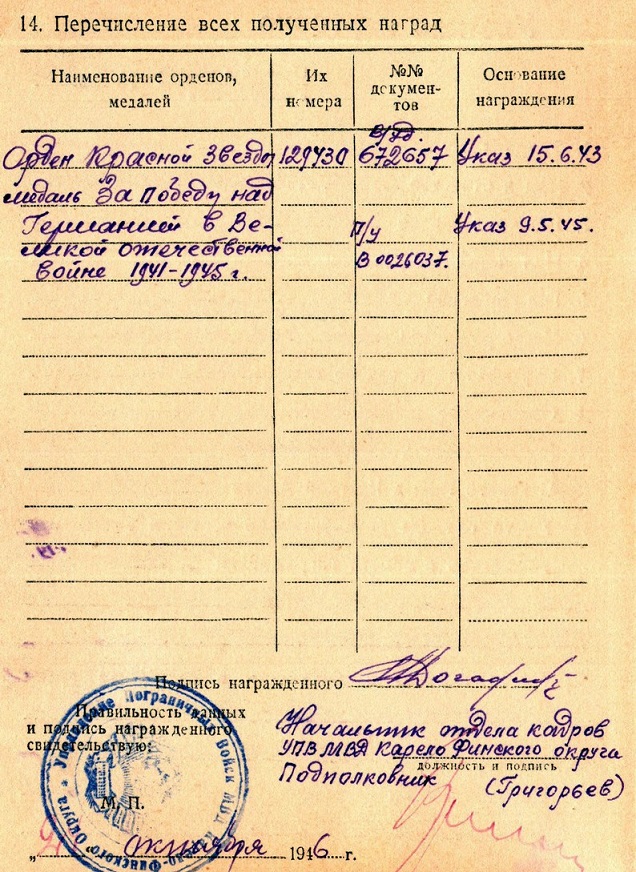 14. Перечисление всех полученных наград
Наименование орденов, медалей
Их номера
№№ документов
Основание награждения
Орден Красной Звезды 129430 б/уд. 672657 Указ 15.6.43
медаль За Победу над
Германией в Ве- П/у Указ 9.5.45.
ликой отечественной В 0026037.
войне 1941-1945 г.
Подпись награжденного
Правильность данных
и подпись награжденного
свидетельствую:
Начальник отдела кадров
УПВ МВД Карело Финского округа
должность и подпись
Подполковник (Григорьев)
М. П.
Управление Пограничных Войск МВД Карело-Финского Округа
" октября 1946 г.